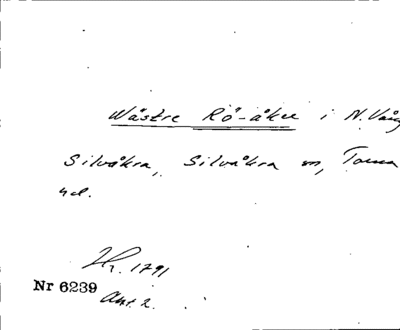 Wästre Rö-åker i N. Vång
Silvåkra, Silvåkra sn, Torna
hd.
Hr. 1791
Nr 6239
Akt. 2.